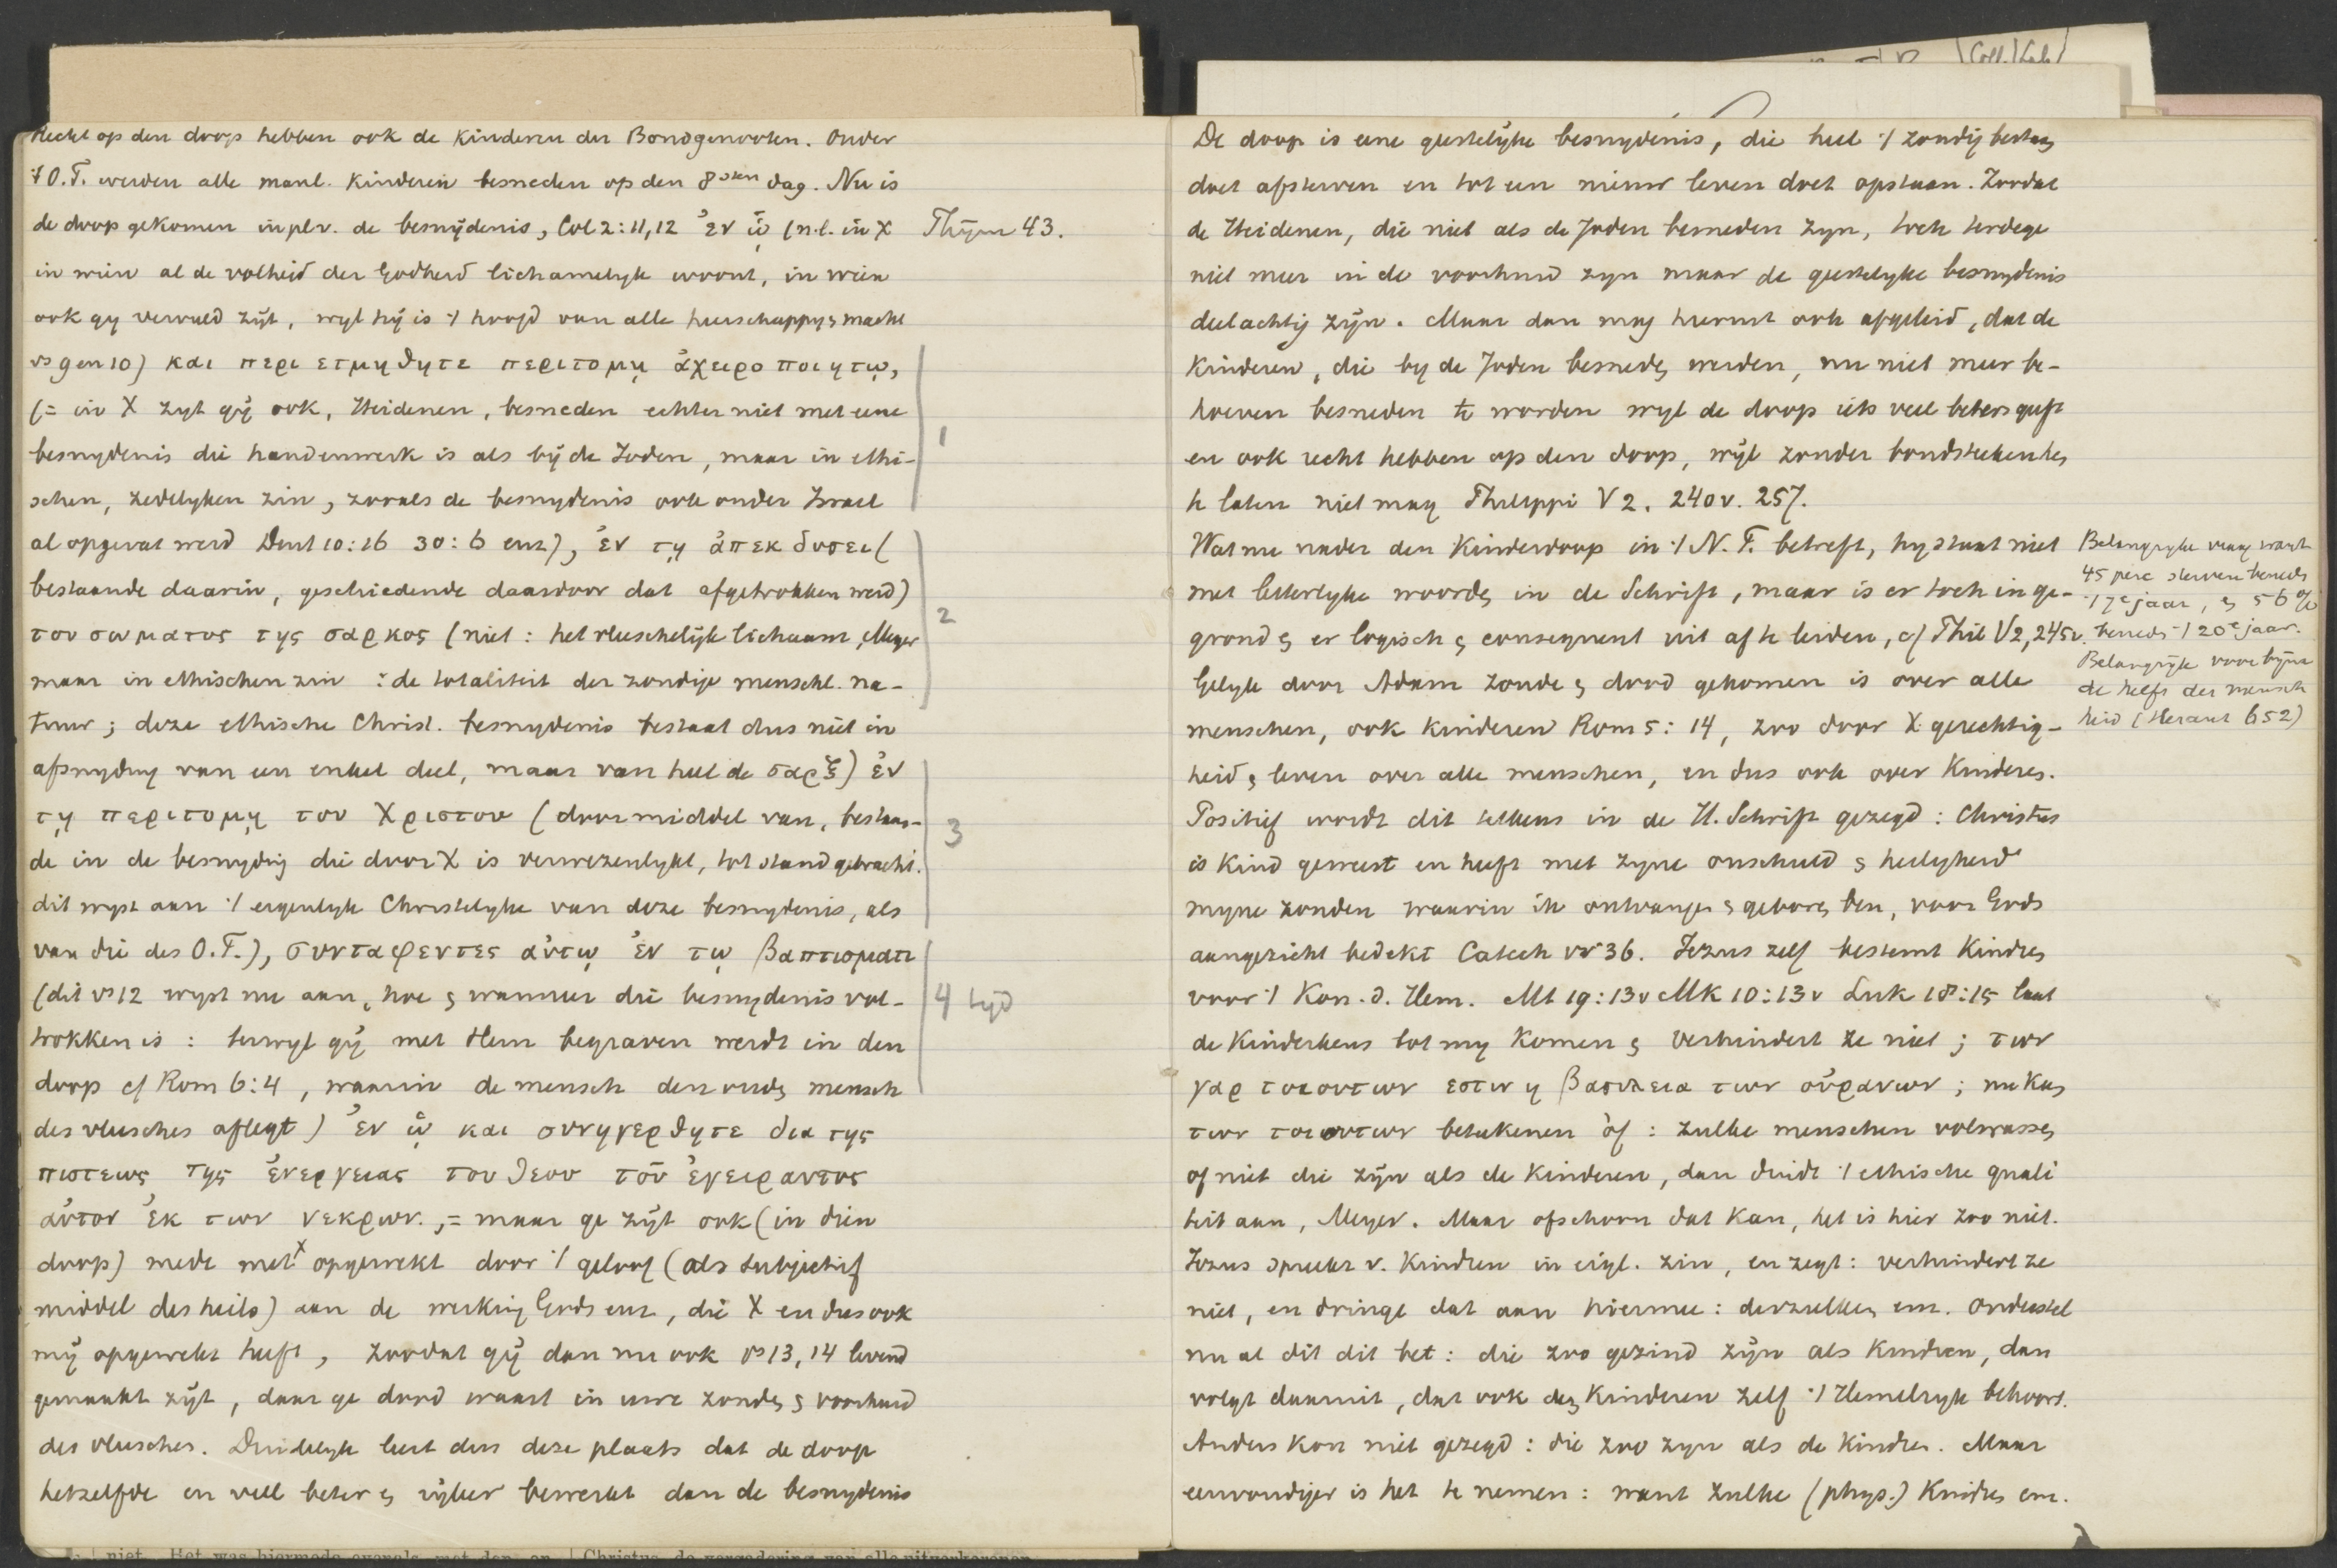 Recht op den doop hebben ook de kinderen der Bondgenooten. Onder
't O.T. werden alle manl. kinderen besneden op den 8sten dag. Nu is
de doop gekomen in pl. v. de besnijdenis, Col 2:11,12 ἐν ᾧ (n.l. in X
Thijm 43.
in wien al de volheid der Godheid lichamelyk woont, in wien
ook gy vervuld zijt, wyl hij is 't hoofd van alle heerschappy & macht
vs 9 en 10) και περι ετμηθητε περιτομῃ ἀχειρο ποιητῳ,
(= in X zyt gij ook, Heidenen, besneden echter niet met eene
1
besnydenis die handenwerk is als bij de Joden, maar in ethi-
schen, zedelyken zin, zooals de besnydenis ook onder Israel
al opgevat werd Deut 10:16 30:6 enz), ἐν τῃ ἀπεκ δυσει (
bestaande daarin, geschiedende daardoor dat afgetrokken werd)
2
του σωματος της σαρκος (niet: het vleeschelijk lichaam, Meyer
maar in ethischen zin : de totaliteit der zondige menschl. na-
tuur; deze ethische Christ. besnydenis bestaat dus niet in
afsnyding van een enkel deel, maar van heel de σαρξ) ἐν
τῃ περιτομῃ του Χριστου (door middel van, bestaan-
3
de in de besnyding die door X is verwezenlykt, tot stand gebracht.
dit wyst aan 't eigenlyk Christelyke van deze besnydenis, als
van die des O.T.), συνταφεντες αὐτῳ ἐν τῳ βαπτισματι
(dit vs 12 wyst nu aan, hoe & wanneer die besnydenis vol-
4 tijd
trokken is : terwyl gij met Hem begraven werdt in den
doop cf Rom 6:4, waarin de mensch den ouden mensch
des vleesches aflegt) ἐν ᾧ και συνηγερθητε δια της
πιστεως της ἐνεργειας του θεου τοῦ ἐγειραντος
αὐτον ἐκ των νεκρων., = maar ge zijt ook (in dien
doop) mede met X opgewekt door 't geloof (als subjectief
middel des heils) aan de werking Gods enz, die X en dus ook
mij opgewekt heeft, zoodat gij dan nu ook vs 13, 14 levend
gemaakt zijt, daar ge dood waart in uwe zonden & voorhuid
des vleesches. Duidelyk leert dus deze plaats dat de doop
hetzelfde en veel beter & rijker bewerkt dan de besnydenis
De doop is eene geestelijke besnydenis, die heel 't zondig bestaan
doet afsterven en tot een nieuw leven doet opstaan. Zoodat
de Heidenen, die niet als de Joden besneden zyn, toch terdege
niet meer in de voorhuid zyn maar de geestelyke besnydenis
deelachtig zijn. Maar dan mag hieruit ook afgeleid, dat de
kinderen, die by de Joden besneden werden, nu niet meer be-
hoeven besneden te worden wyl de doop iets veel beters geeft
en ook recht hebben op den doop, wijl zonder bondsteeken hen
te laten niet mag Philippi V 2. 240v. 257.
Wat nu nader den Kinderdoop in 't N.T. betreft, hy staat niet
met letterlyke woorden in de Schrift, maar is er toch in ge-
grond & er logisch & consequent uit af te leiden, cf Phil V2, 245v.
Gelyk door Adam zonde & dood gekomen is over alle
menschen, ook kinderen Rom 5:14, zoo door X gerechtig-
heid & leven over alle menschen, en dus ook over Kinderen.
Positief wordt dit telkens in de H. Schrift gezegd : Christus
is Kind geweest en heeft met zyne onschuld & heiligheid
myne zonden waarin ik ontvangen & geboren ben, voor Gods
aangezicht bedekt Catech vr 36. Jezus zelf bestemt Kindren
voor 't Kon. d. Hem. Mt 19:13v Mk 10:13v Luk 18:15 laat
de Kinderkens tot my Komen & verhindert ze niet; των
γαρ τοιουτων εστιν η βασιλεια των οὐρανων; nu kan
των τοιουτων beteekenen òf : zulke menschen volwassen
of niet die zijn als de kinderen, dan duidt 't ethische quali
teit aan, Meyer. Maar ofschoon dat kan, het is hier zoo niet.
Jezus spreekt v. Kindren in eigl. zin, en zegt : verhindert ze
niet, en dringt dat aan hiermee : derzulken enz. Ondersteld
nu al dit dit bet : die zoo gezind zijn als Kindren, dan
volgt daaruit, dat ook den Kinderen zelf 't Hemelryk behoort.
Anders kon niet gezegd : die zoo zyn als de Kindren. Maar
eenvoudiger is het te nemen : want zulke (phys.) Kindren enz.
Belangryke vraag want
45 perc sterven beneden
't 7e jaar, & 56 %
beneden 't 20e jaar.
Belangrijk voor bijna
de helft der mensch
heid (Heraut 652)